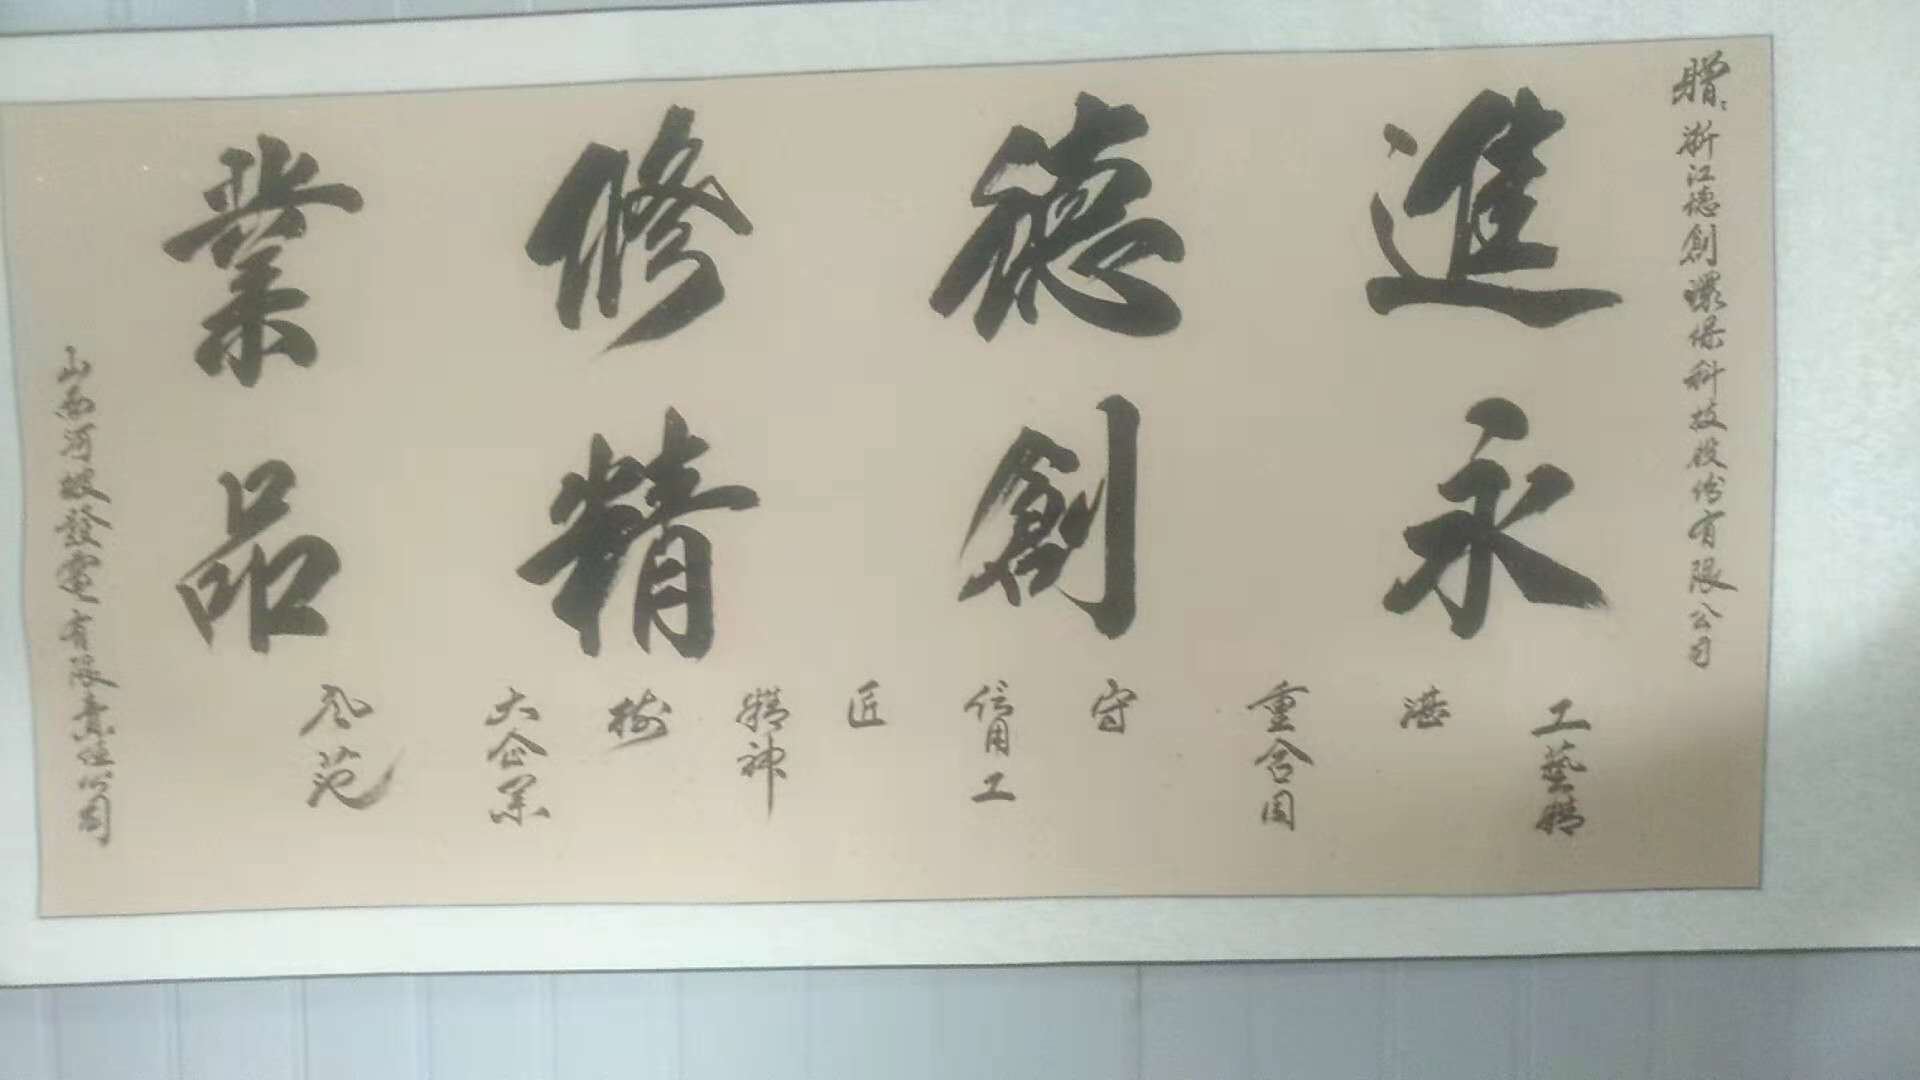 贈：浙江德創環保科技股份有限公司
進德修業
永創精品
工藝精
湛
重合同
守
信用工
匠
精神
树
大企業
风范
山西河坡發電有限責任公司